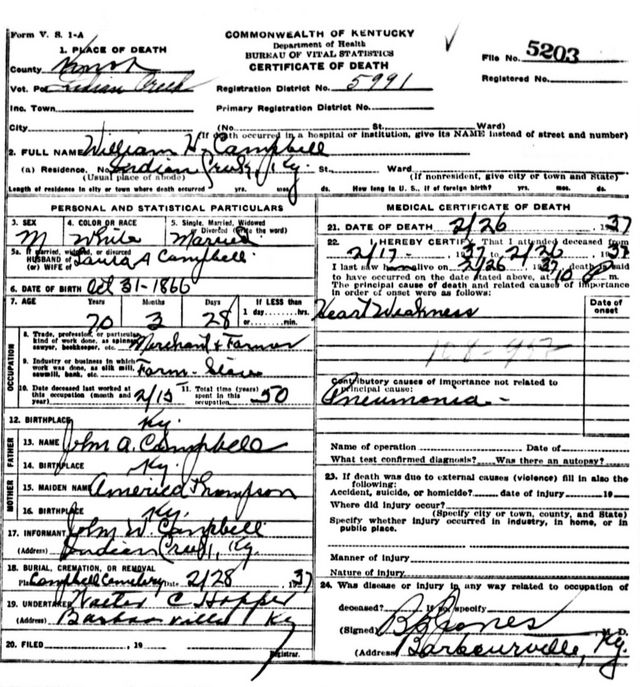 Form V. S. 1-A
COMMONWEALTH OF KENTUCKY
Department of Health
BUREAU OF VITAL STATISTICS
CERTIFICATE OF DEATH
File No. 5203
Registered No.
1. PLACE OF DEATH
County Knox
Vot. Pct Indian Creek
Registration District No. 5991
Inc. Town
Primary Registration District No.
City (No. St. Ward)
(If death occurred in a hospital or institution, give its NAME instead of street and number)
2. FULL NAME William W. Campbell
(a) Residence, No. Indian Creek, Ky. St., Ward
(Usual place of abode) (If nonresident, give city or town and State)
Length of residence in city or town where death occurred yrs. mos. ds. How long in U. S., if of foreign birth? yrs. mos. ds.
PERSONAL AND STATISTICAL PARTICULARS
3. SEX M
4. COLOR OR RACE White
5. Single, Married, Widowed
Divorced (write the word) Married
5a. If married, widowed, or divorced
HUSBAND of
(or) WIFE of Laura A Campbell
6. DATE OF BIRTH Oct 31-1866
7. AGE Years Months Days If LESS than
1 day, hrs.
70 3 28 or min.
OCCUPATION
8. Trade, profession, or particular
kind of work done, as spinner,
sawyer, bookkeeper, etc. Merchant & Farmer
9. Industry or business in which
work was done, as silk mill,
sawmill, bank, etc. Farm-
10. Date deceased last worked at
this occupation (month and
year) 2/15
11. Total time (years)
spent in this
occupation 50
12. BIRTHPLACE Ky.
FATHER
13. NAME John A. Campbell
14. BIRTHPLACE Ky.
MOTHER
15. MAIDEN NAME America Thompson
16. BIRTHPLACE Ky.
17. INFORMANT John W. Campbell
(Address) Indian Creek, Ky.
18. BURIAL, CREMATION, OR REMOVAL
Place Campbell Cemetery Date 2/28 1937
19. UNDERTAKER Walter C Hopper
(Address) Barbourville Ky
20. FILED , 19 Registrar.
MEDICAL CERTIFICATE OF DEATH
21. DATE OF DEATH 2/26 1937
22. I HEREBY CERTIFY, That I attended deceased from
2/17 1937 to 2/26 1937
I last saw him alive on 2/26 1937, death is said
to have occurred on the date stated above, at 10
The principal cause of death and related causes of importance
in order of onset were as follows:
Date of
onset
Heart Weakness
Contributory causes of importance not related to
principal cause:
Pneumonia-
Name of operation Date of
What test confirmed diagnosis? Was there an autopsy?
23. If death was due to external causes (violence) fill in also the
following:
Accident, suicide, or homicide? date of injury 19
Where did injury occur?
(Specify city or town, county, and State)
Specify whether injury occurred in industry, in home, or in
public place.
Manner of injury
Nature of injury
24. Was disease or injury in any way related to occupation of
deceased? If so, specify
(Signed) B B Jones M. D.
(Address) Barbourville, Ky.